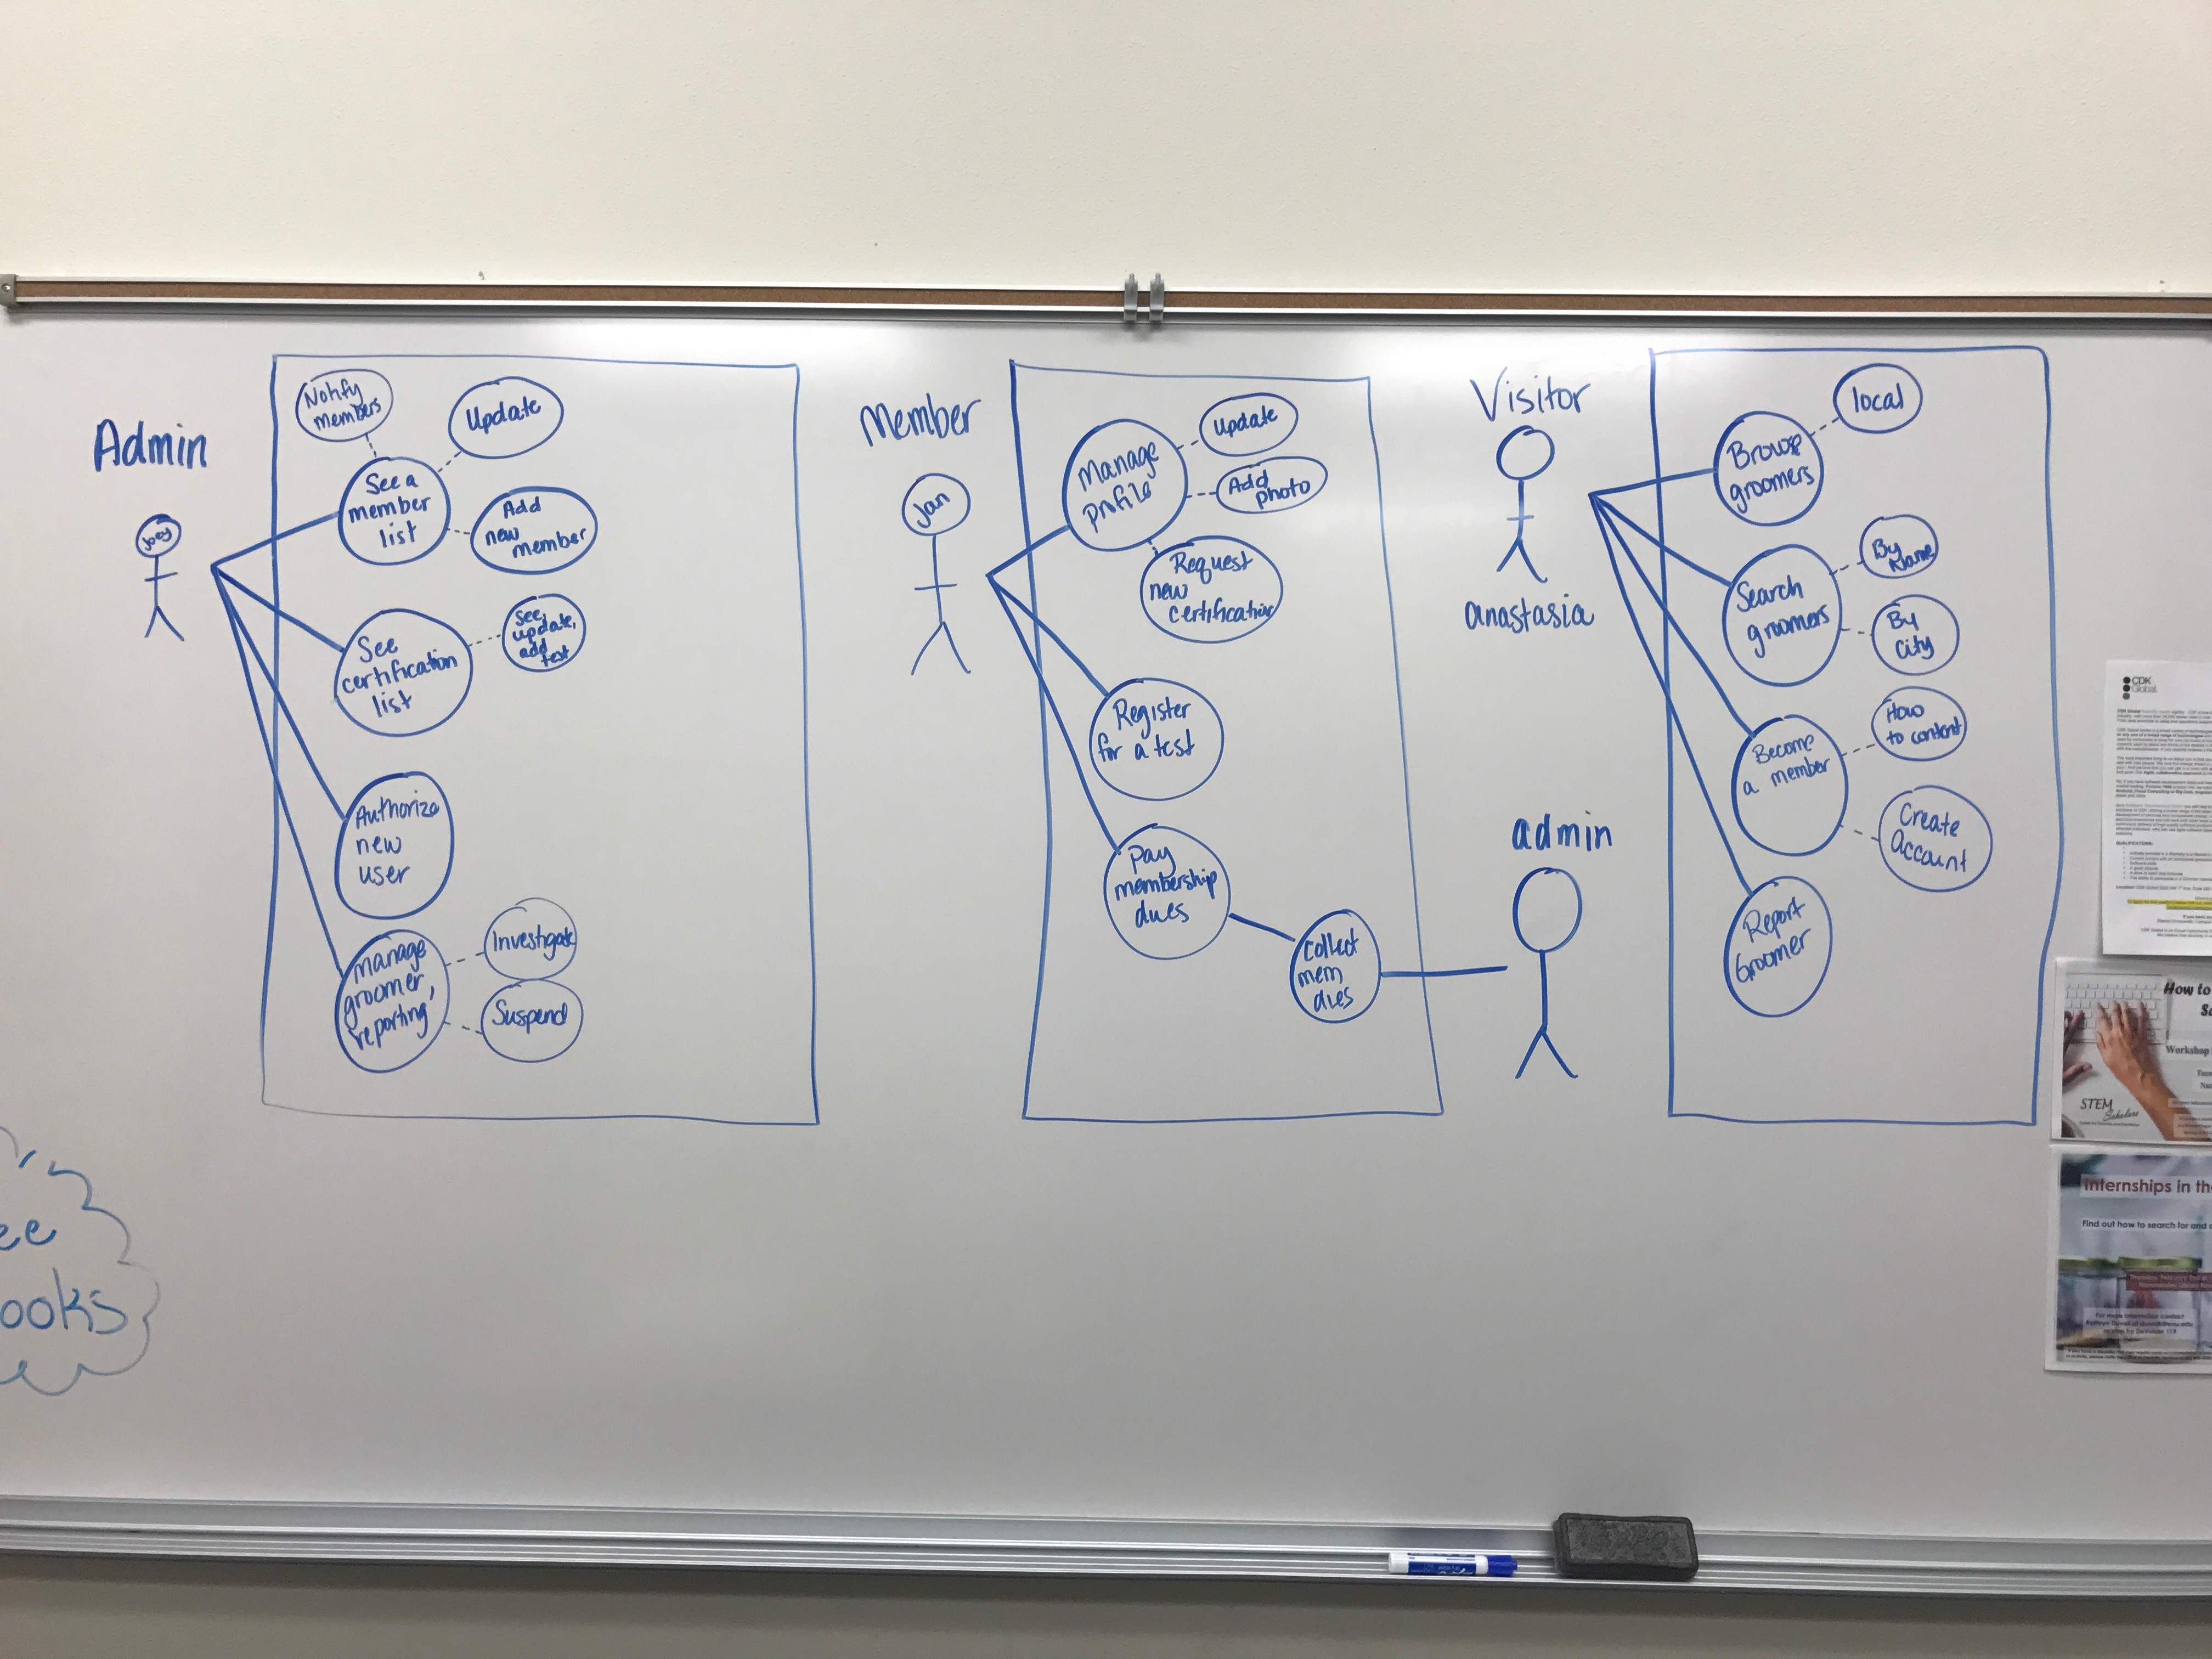 Admin
Joey
Notify
members
Update
See a
member
list
Add
new
member
See
certification
list
See,
update,
add
test
Authorize
new
user
Manage
groomer,
reporting
Investigate
Suspend
Member
Jan
Manage
profile
update
Add
photo
Request
new
certification
Register
for a test
Pay
membership
dues
Collect
mem,
dues
admin
Visitor
anastasia
Browse
groomers
local
Search
groomers
By
Name
By
City
Become
a member
How
to content
Create
Account
Report
Groomer
ee
ooks
CDK
Global.
QUALIFICATIONS:
How to
Workshop
STEM
Scholars
Internships in th
Find out how to search for and
For more information contact